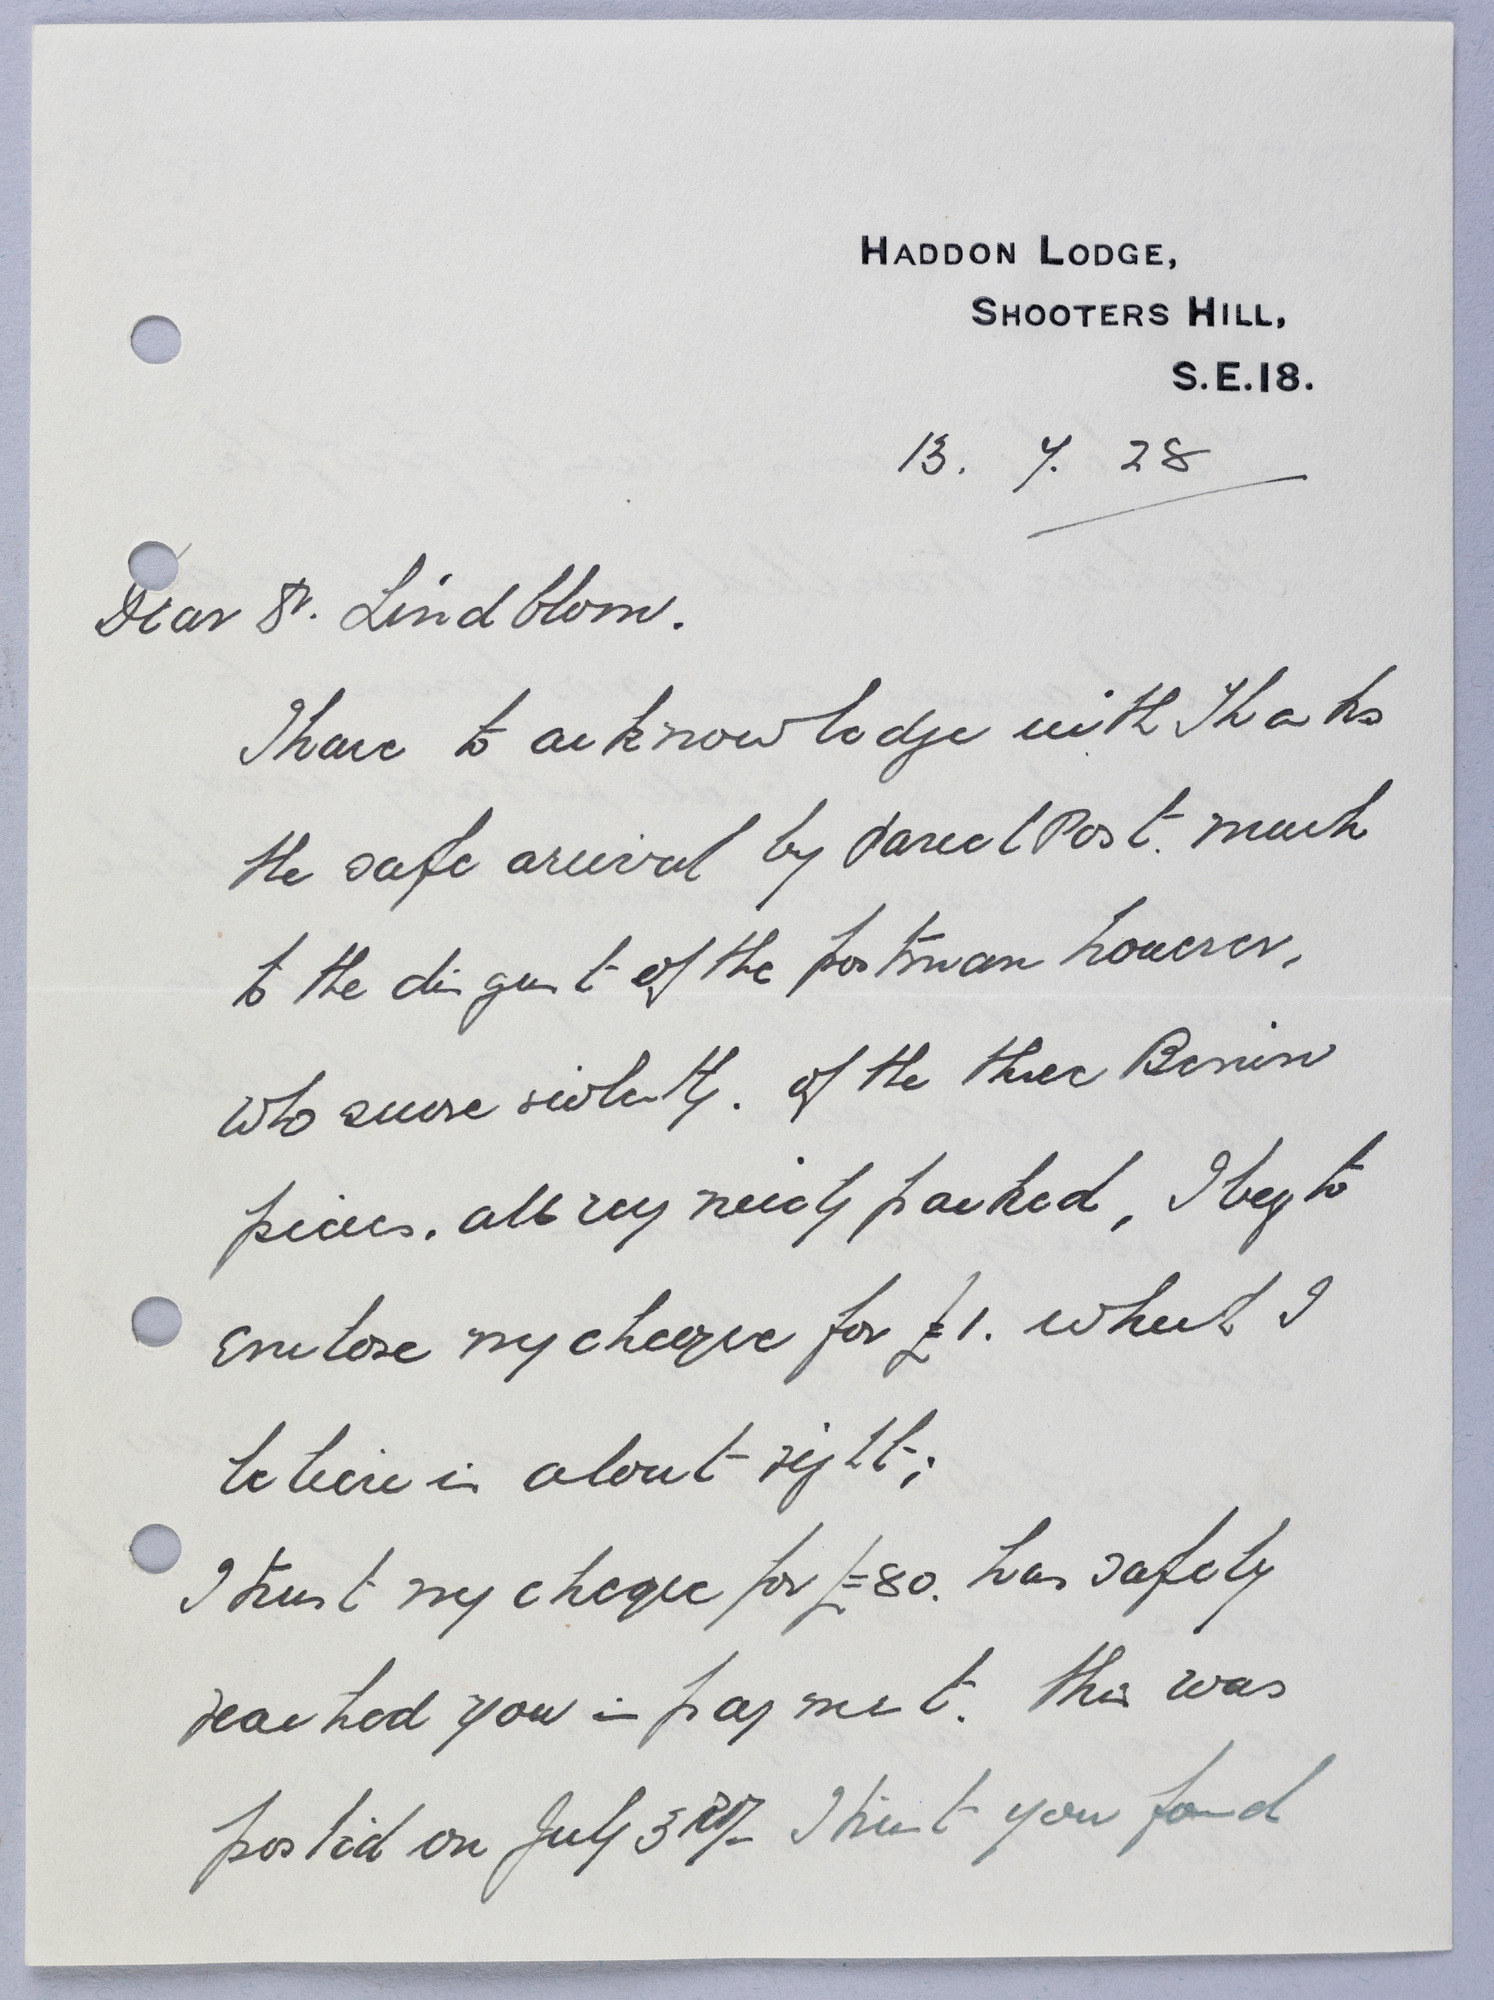 HADDON LODGE,
SHOOTERS HILL,
S.E.18.
13. 7. 28
Dear Dr. Lindblom.
I have to acknowledge with thanks
the safe arrival by Parcel Post. much
to the disgust of the postman however,
who swore violently. of the three Benin
pieces. all very nicely packed, I beg to
enclose my cheque for £1. which I
believe is about right;
I trust my cheque for £80. has safely
reached you in payment. this was
posted on July 3RD. I trust you found